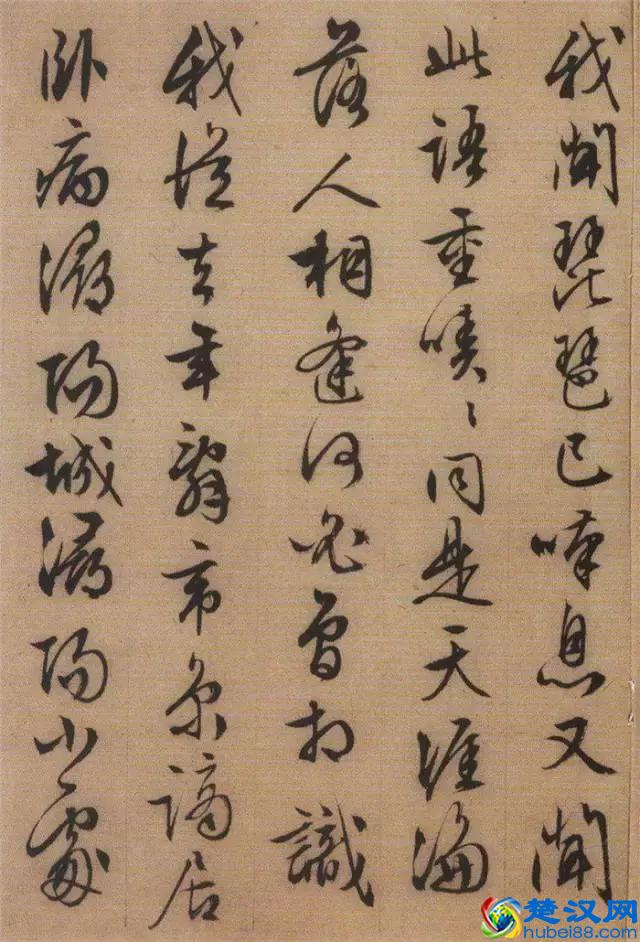 我聞琵琶已嘆息又聞
此語重唧〻同是天涯淪
落人相逢何必曾相識
我從去年辭帝京謫居
卧病潯陽城潯陽小處
楚汉网
hubei88.com